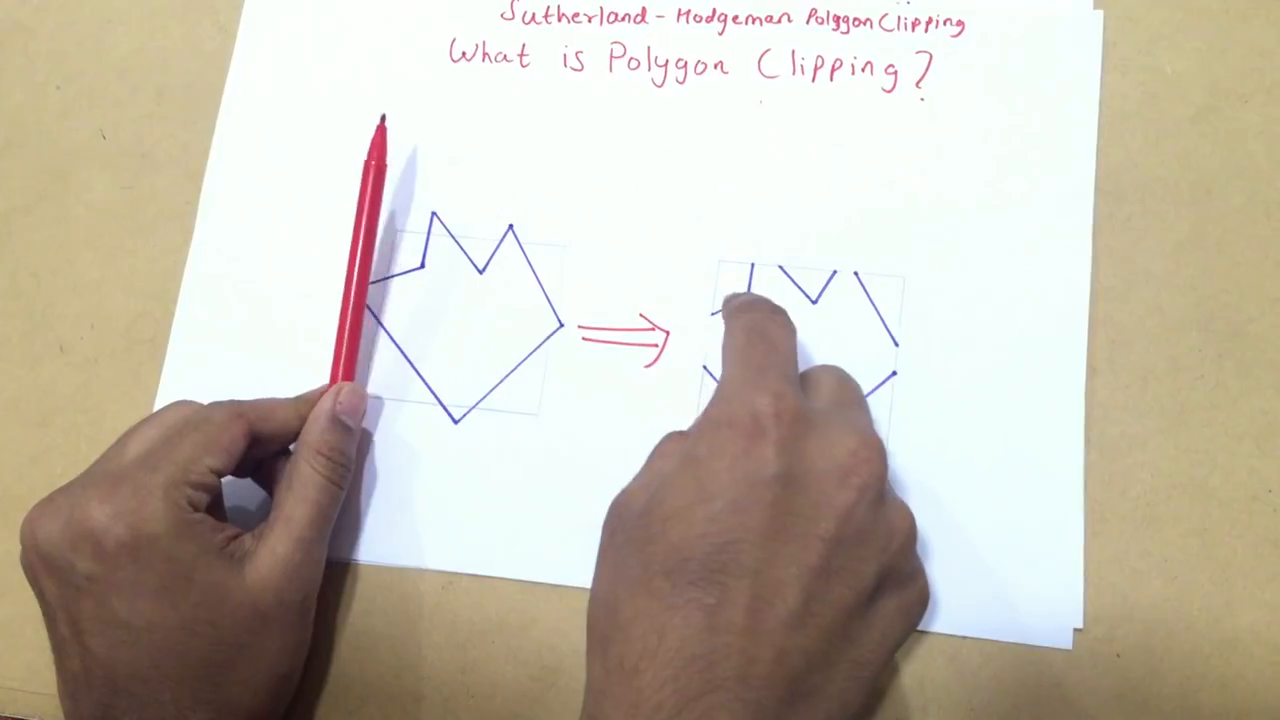 Sutherland-Hodgeman Polygon Clipping
What is Polygon Clipping?